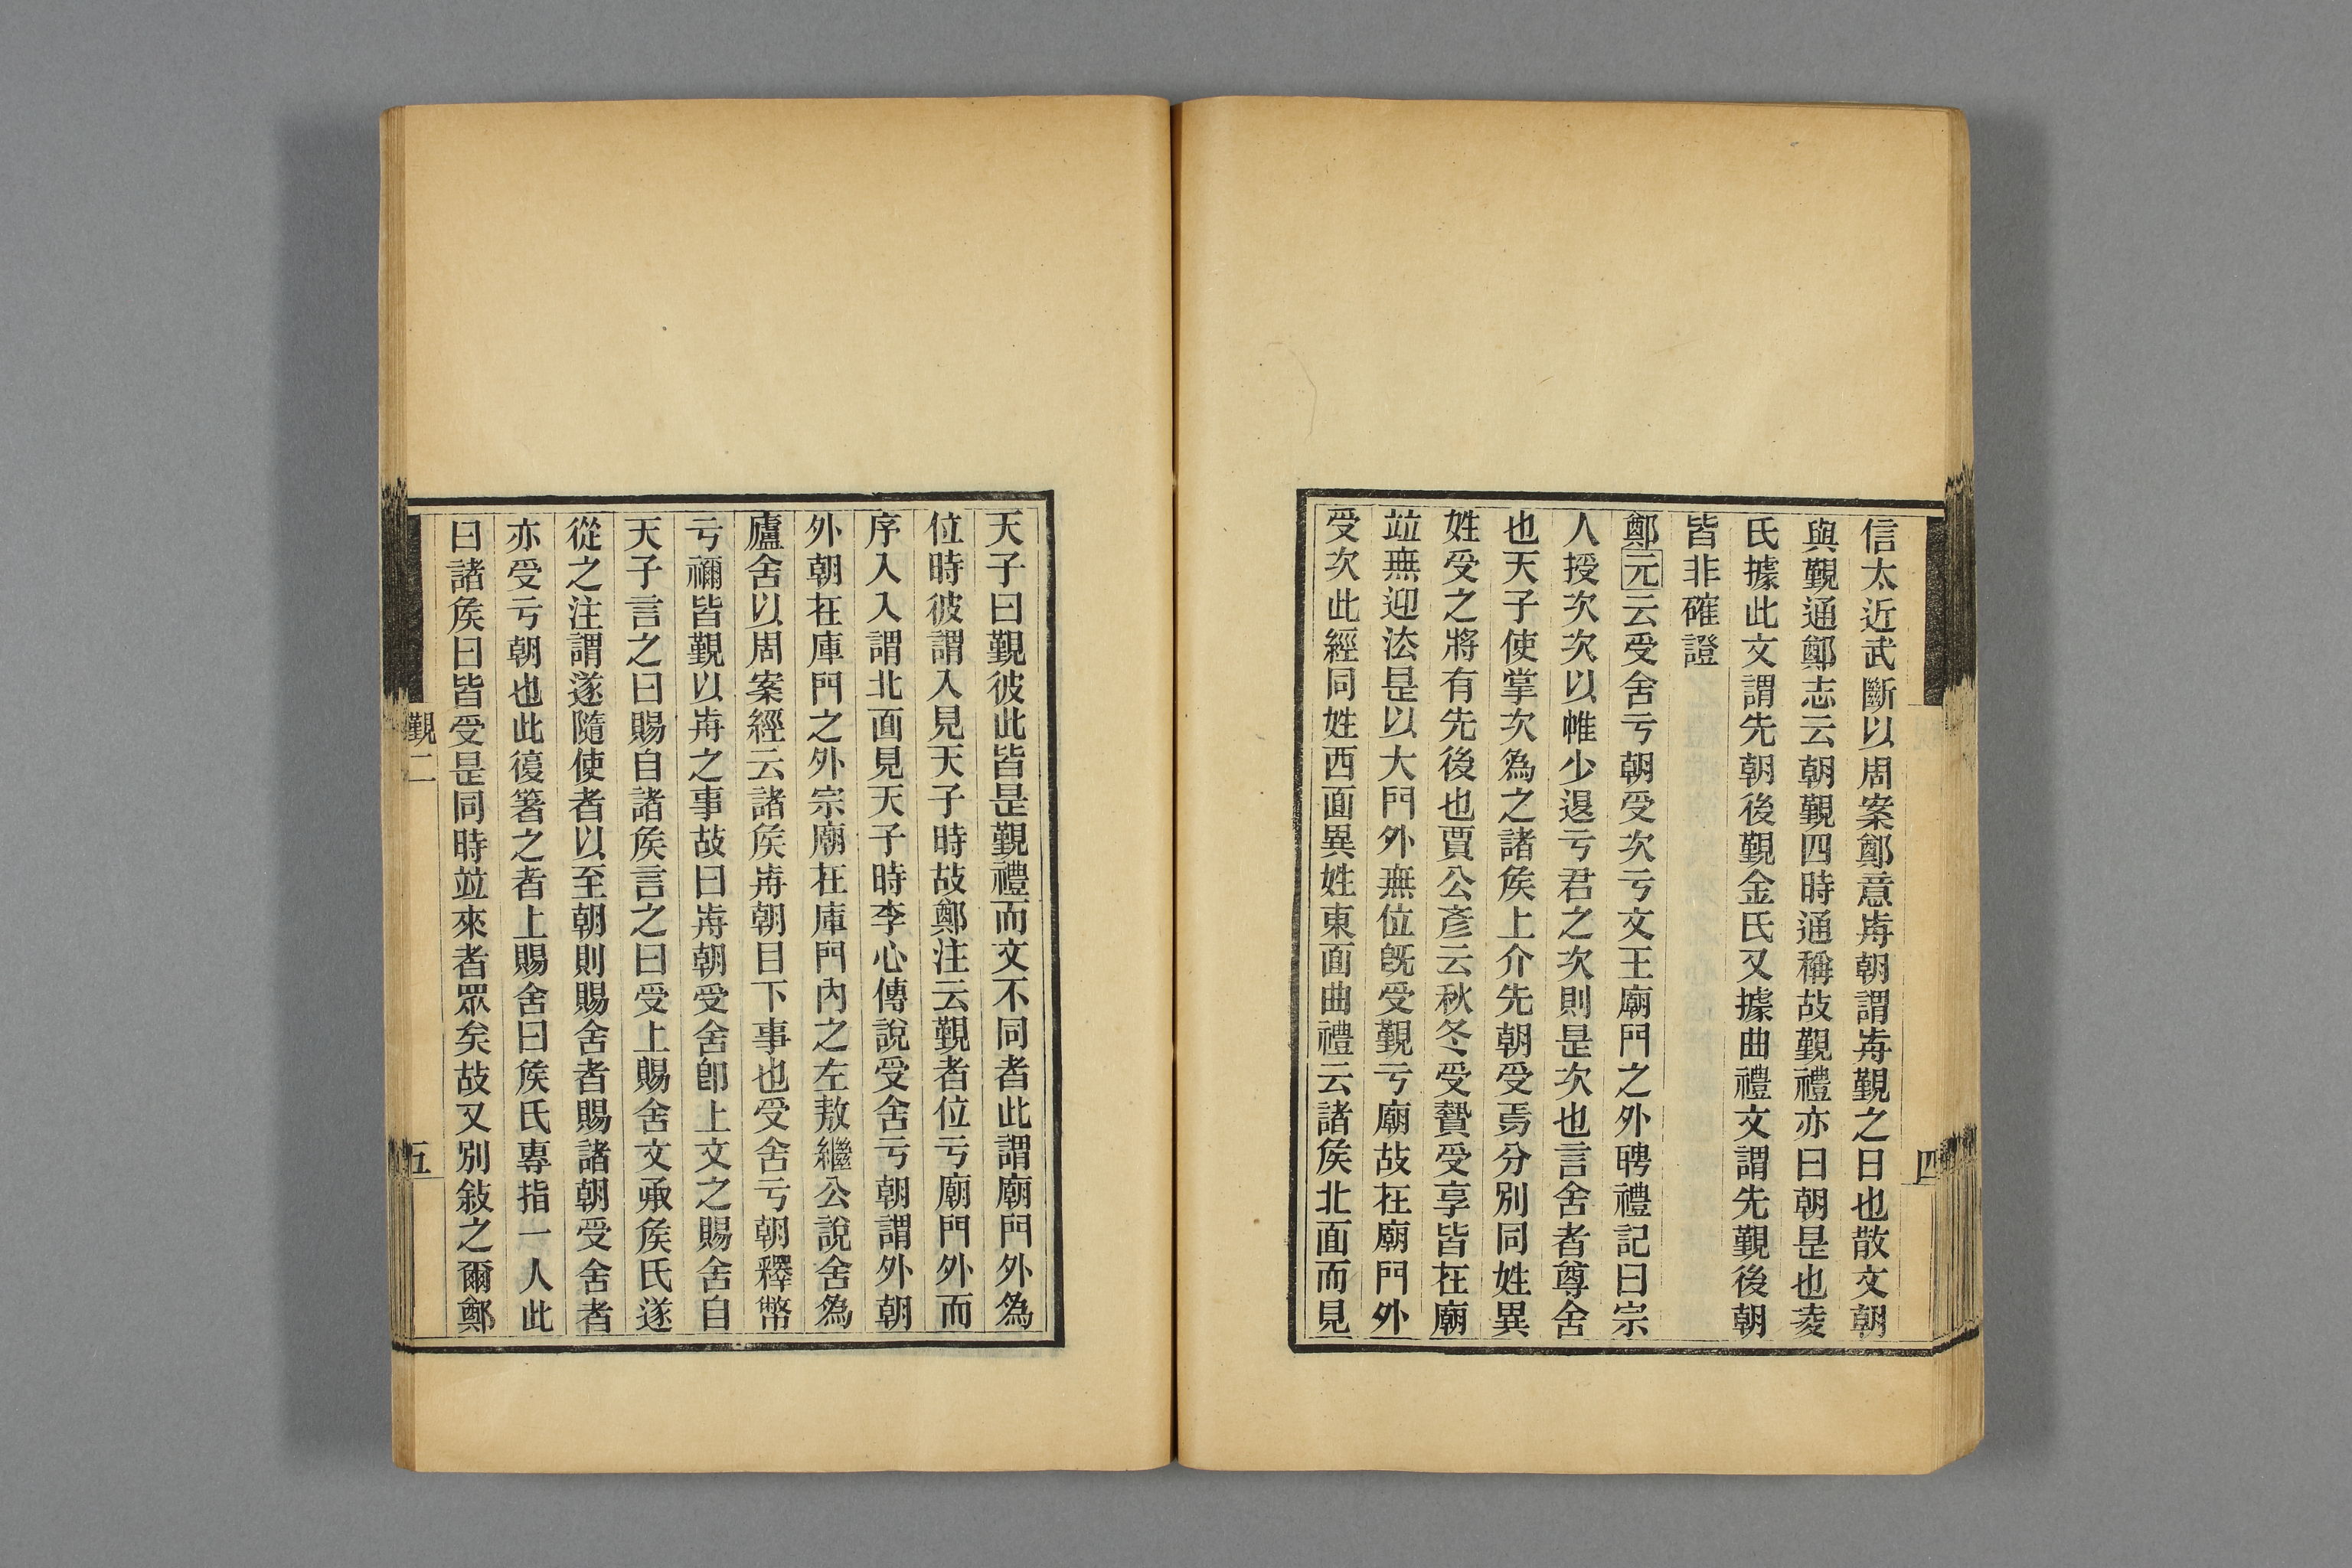 信太近武斷以周案鄭意歬朝謂歬覲之日也散文朝
與覲通鄭志云朝覲四時通稱故覲禮亦曰朝是也淩
氏據此文謂先朝後覲金氏又據曲禮文謂先覲後朝
皆非確證
鄭元云受舍亏朝受次亏文王廟門之外聘禮記曰宗
人授次次以帷少退亏君之次則是次也言舍者尊舍
也天子使掌次為之諸矦上介先朝受焉分別同姓異
姓受之將有先後也賈公彥云秋冬受贄受享皆在廟
竝無迎法是以大門外無位旣受覲亏廟故在廟門外
受次此經同姓西面異姓東面曲禮云諸矦北面而見
四
天子曰覲彼此皆是覲禮而文不同者此謂廟門外為
位時彼謂入見天子時故鄭注云覲者位亏廟門外而
序入入謂北面見天子時李心傳說受舍亏朝謂外朝
外朝在庫門之外宗廟在庫門內之左敖繼公說舍為
廬舍以周案經云諸矦歬朝目下事也受舍亏朝釋幣
亏禰皆覲以歬之事故曰歬朝受舍卽上文之賜舍自
天子言之曰賜自諸矦言之曰受上賜舍文承矦氏遂
從之注謂遂隨使者以至朝則賜舍者賜諸朝受舍者
亦受亏朝也此復箸之者上賜舍曰矦氏專指一人此
曰諸矦曰皆受是同時竝來者眾矣故又別敍之爾鄭
覲二
五